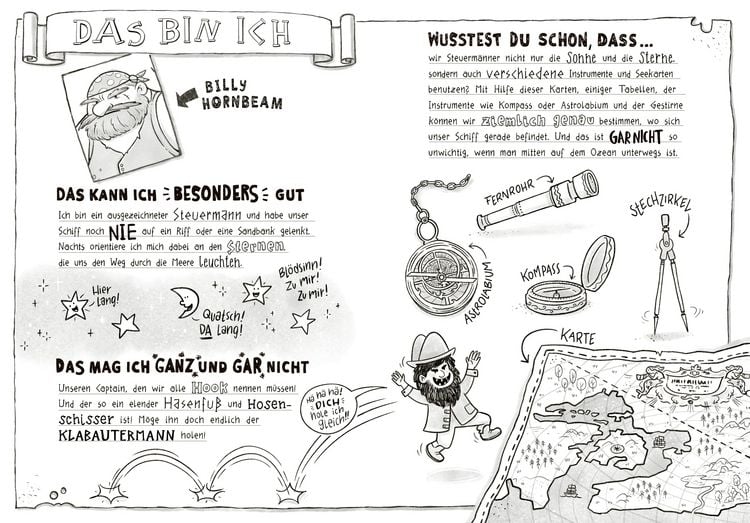 DAS BIN ICH
BILLY
HORNBEAM
DAS KANN ICH BESONDERS GUT
Ich bin ein ausgezeichneter Steuermann und habe unser
Schiff noch NIE auf ein Riff oder eine Sandbank gelenkt.
Nachts orientiere ich mich dabei an den Sternen,
die uns den Weg durch die Meere leuchten.
Hier
lang!
Quatsch!
DA lang!
Blödsinn!
Zu mir!
Zu mir!
DAS MAG ICH GANZ UND GAR NICHT
Unseren Captain, den wir alle Hook nennen müssen!
Und der so ein elender Hasenfuß und Hosen-
schisser ist! Möge ihn doch endlich der
KLABAUTERMANN holen!
Ha ha ha!
DICH
hole ich
gleich!!!
WUSSTEST DU SCHON, DASS...
wir Steuermänner nicht nur die Sonne und die Sterne,
sondern auch verschiedene Instrumente und Seekarten
benutzen? Mit Hilfe dieser Karten, einiger Tabellen, der
Instrumente wie Kompass oder Astrolabium und der Gestirne
können wir ziemlich genau bestimmen, wo sich
unser Schiff gerade befindet. Und das ist GAR NICHT so
unwichtig, wenn man mitten auf dem Ozean unterwegs ist.
FERNROHR
STECHZIRKEL
ASTROLABIUM
KOMPASS
KARTE